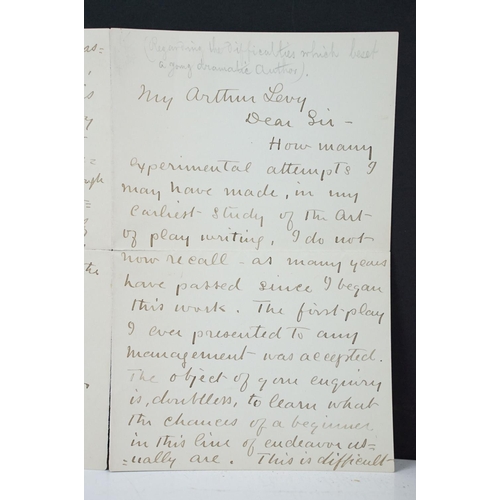 (Regarding the difficulties which beset
a young dramatic author).
My Arthur Levy
Dear Sir -
How many
experimental attempts I
may have made, in my
earliest study of the art
of play writing, I do not
now recall - as many years
have passed since I began
this work. The first play
I ever presented to any
management was accepted.
The object of your enquiry
is, doubtless, to learn what
the chances of a beginner
in this line of endeavor us-
-ually are. This is difficult
as-
the